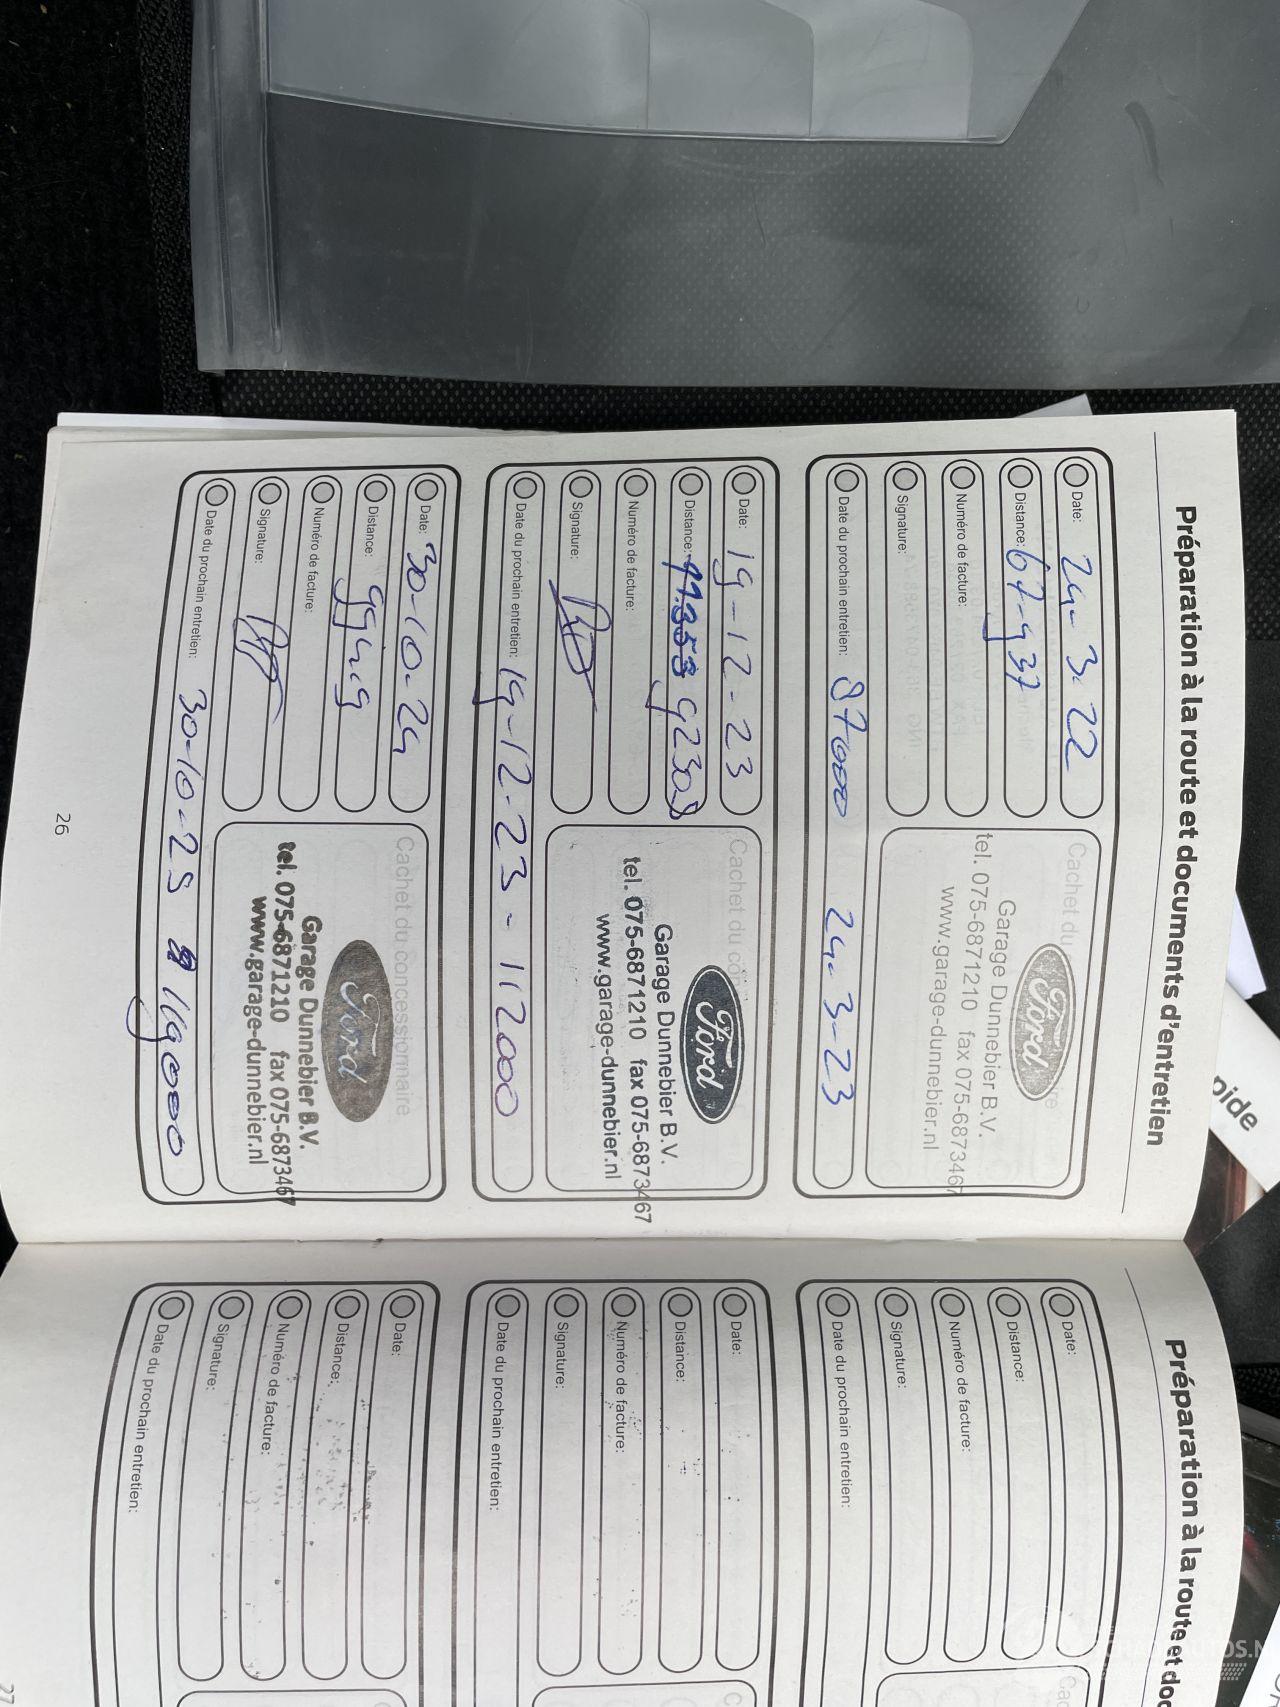 Préparation à la route et documents d'entretien
Date: 24-3-22
Distance: 67-937
Numéro de facture:
Signature:
Date du prochain entretien: 87000 24-3-23
Cachet du
Ford
Garage Dunnebier B.V.
tel. 075-6871210 fax 075-6873467
www.garage-dunnebier.nl
Date: 19-12-23
Distance: 92308
Numéro de facture:
Signature:
Date du prochain entretien: 19-12-23 - 112000
Cachet du
Ford
Garage Dunnebier B.V.
tel. 075-6871210 fax 075-6873467
www.garage-dunnebier.nl
Date: 30-10-24
Distance:
Numéro de facture:
Signature:
Date du prochain entretien: 30-10-25 119000
Cachet du concessionnaire
Ford
Garage Dunnebier B.V.
tel. 075-6871210 fax 075-6873467
www.garage-dunnebier.nl
26
Préparation à la route et doc
Date:
Distance:
Numéro de facture:
Signature:
Date du prochain entretien:
Date:
Distance:
Numéro de facture:
Signature:
Date du prochain entretien:
Date:
Distance:
Numéro de facture:
Signature:
Date du prochain entretien:
27
pide